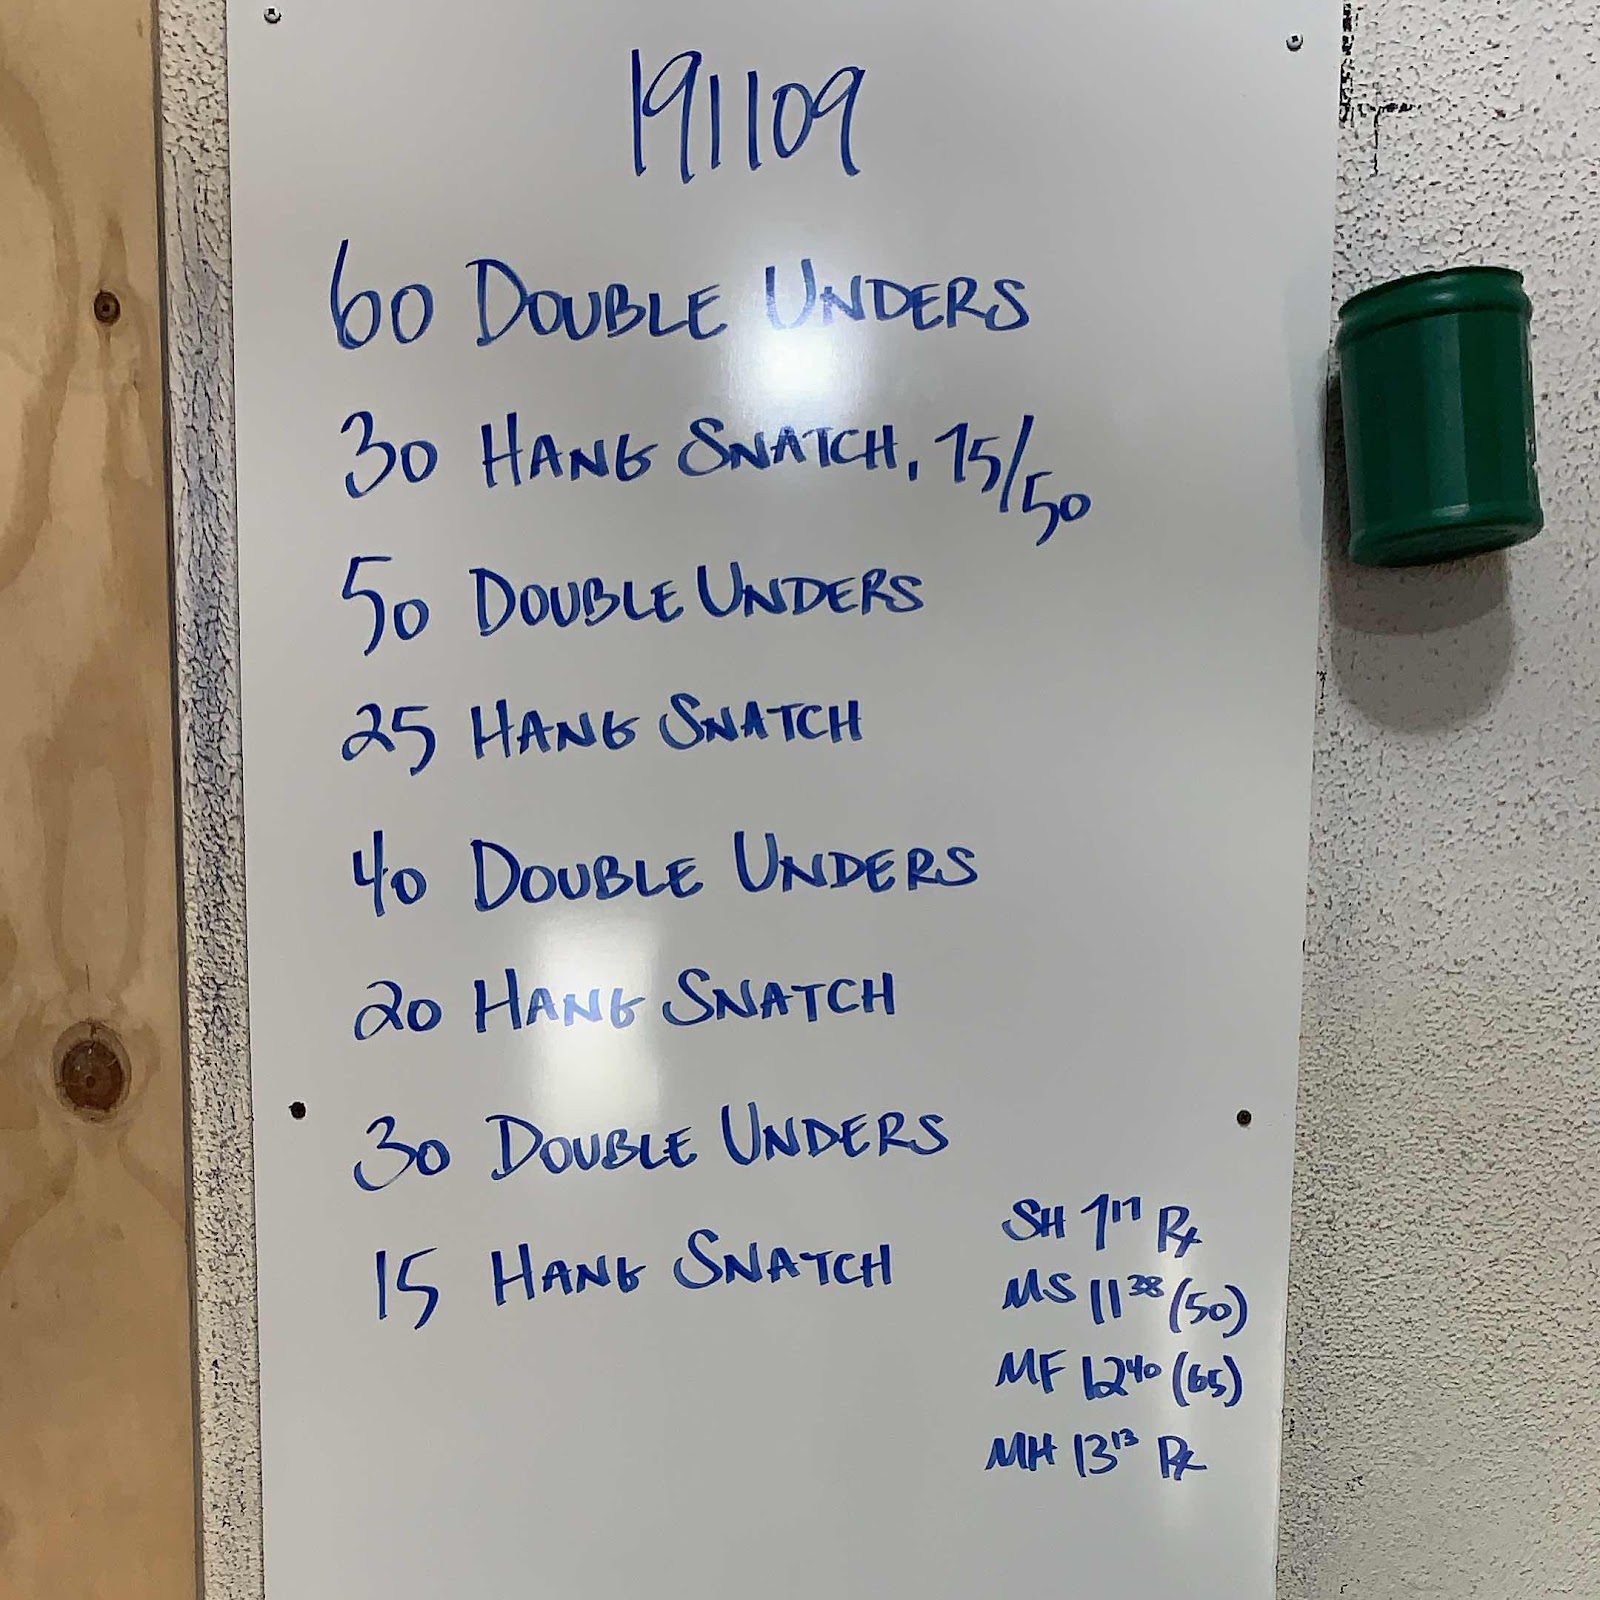 191109
60 DOUBLE UNDERS
30 HANG SNATCH, 75/50
50 DOUBLE UNDERS
25 HANG SNATCH
40 DOUBLE UNDERS
20 HANG SNATCH
30 DOUBLE UNDERS
15 HANG SNATCH
SH 7 17 Rx
MS 11 38 (50)
MF 12 40 (65)
MH 13 13 Rx